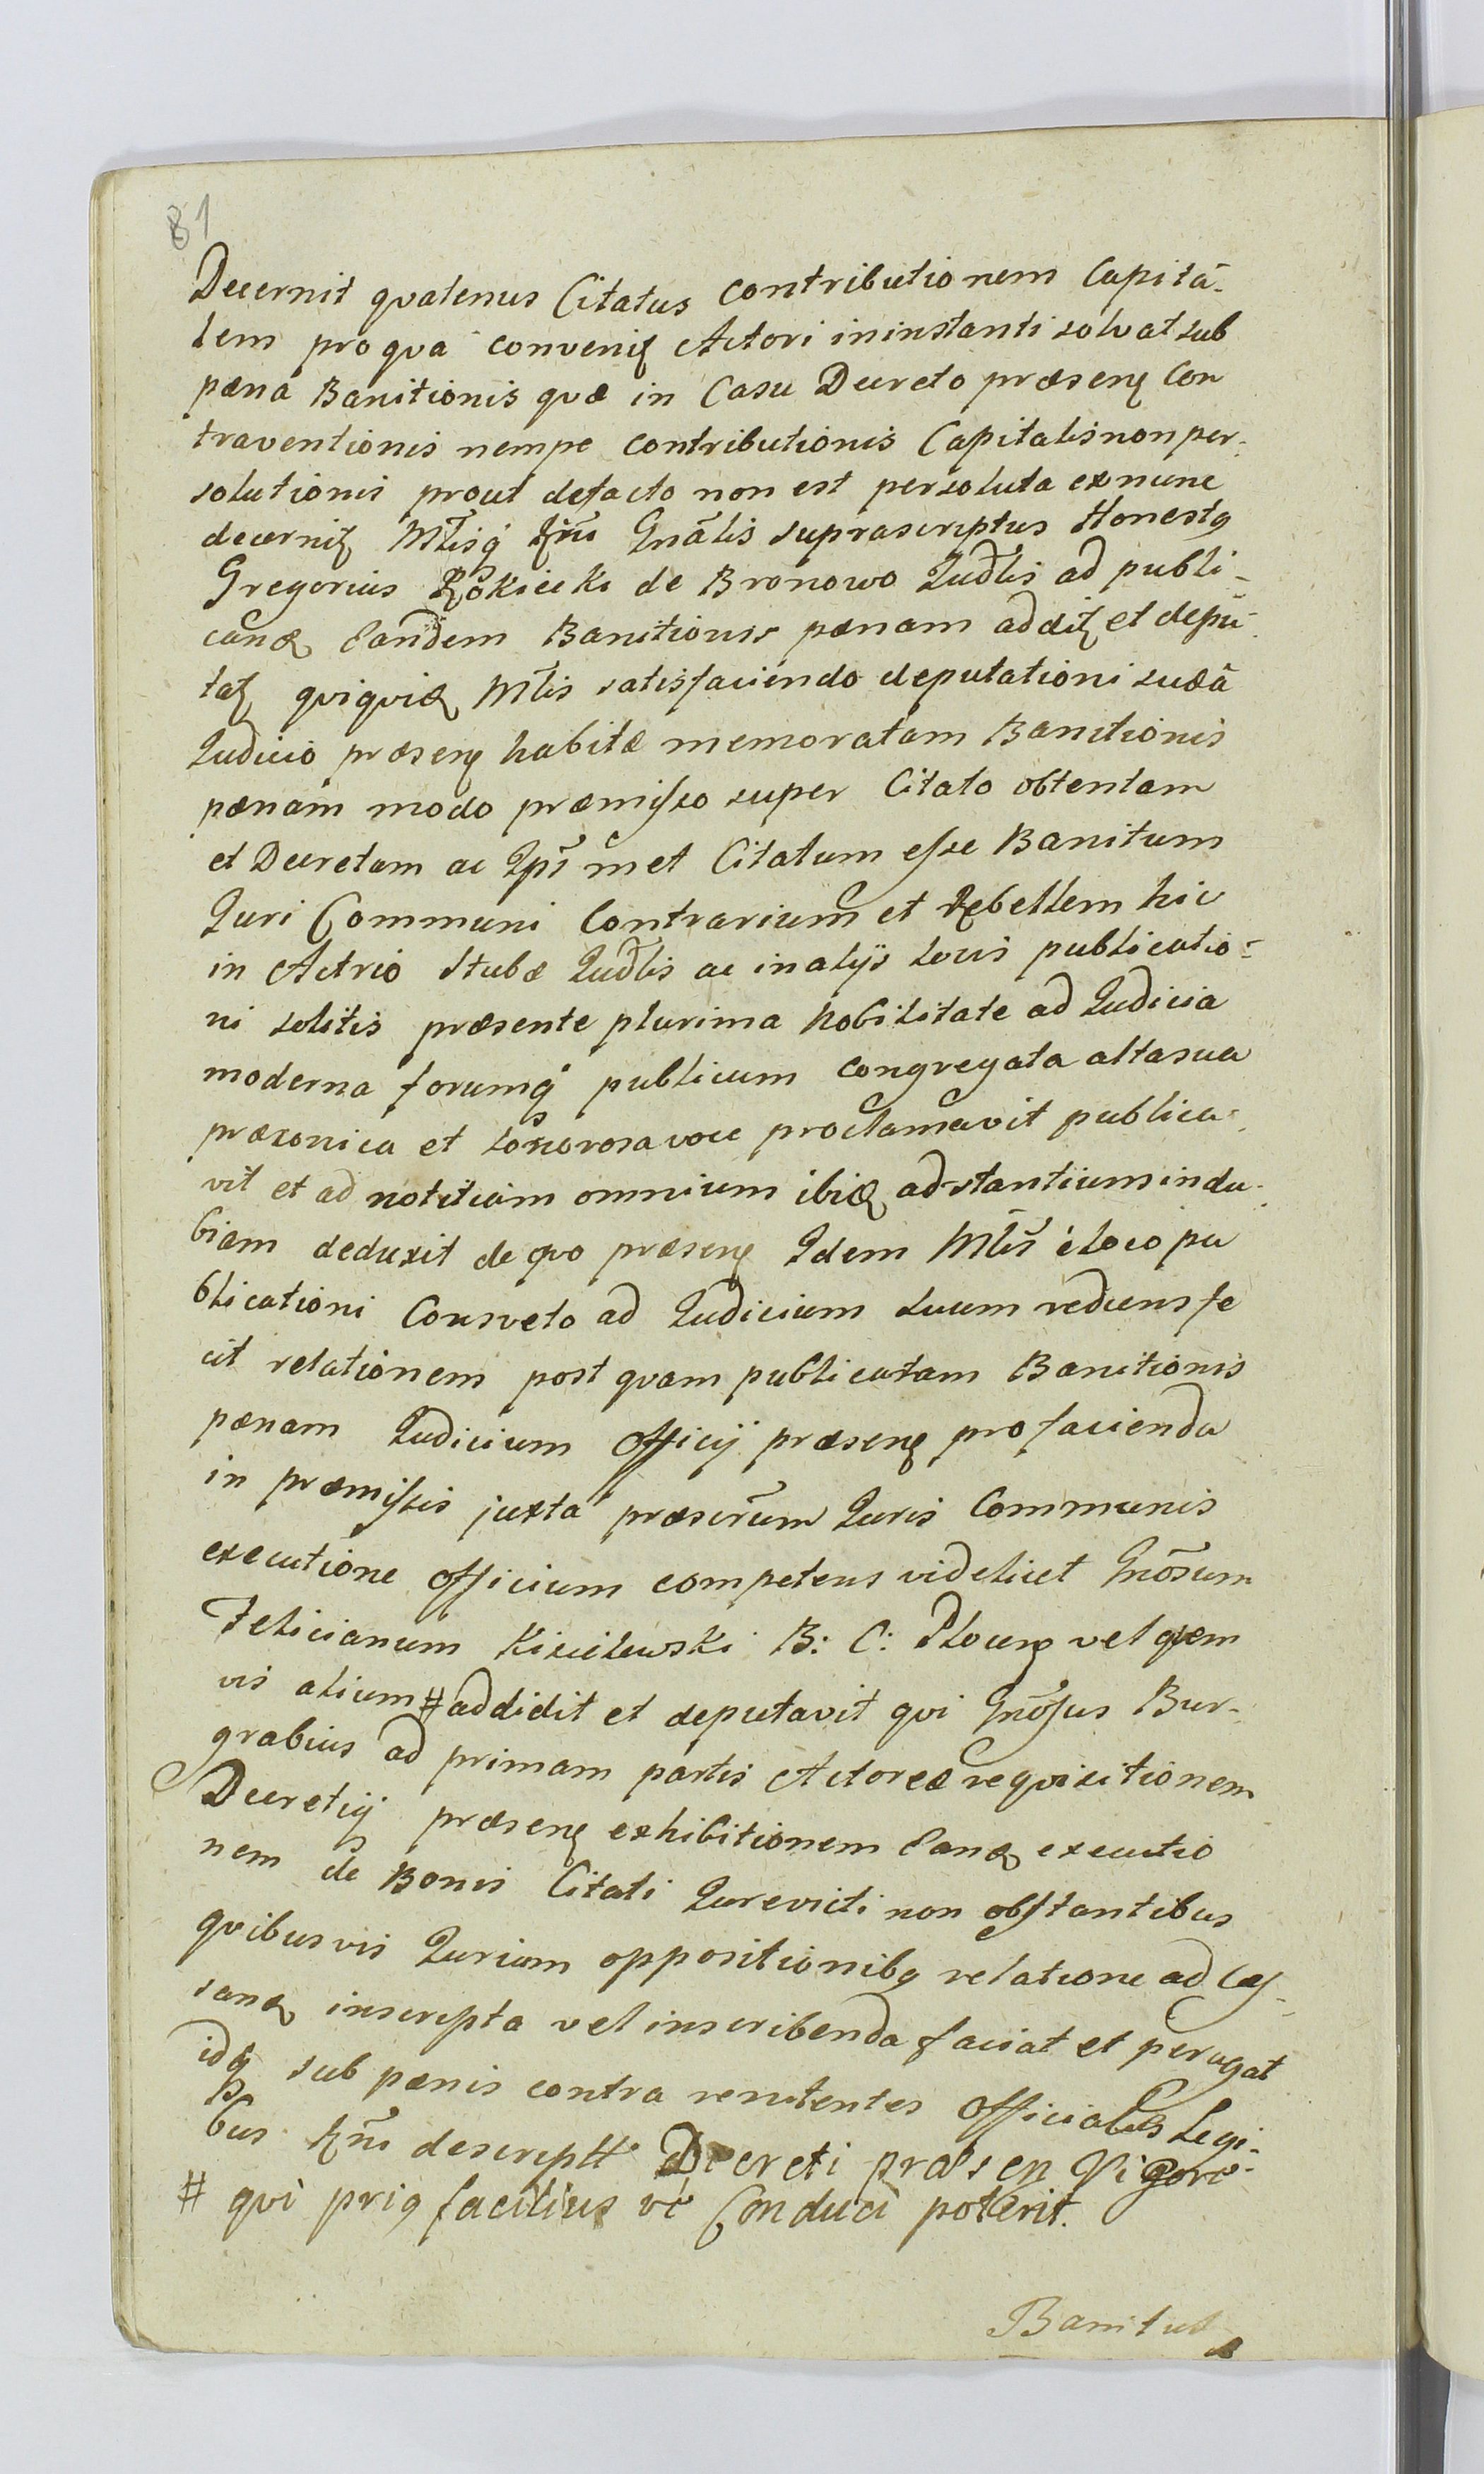 81
Decernit qvatenus Citatus contributionem Capitā-
lem pro qva convenitꝫ Actori in instanti solvat sub
pæna Banitionis qvæ in Casu Decreto præsenꝫ Con
traventionis nempe contributionis Capitalis non per-
solutionis prout defacto non est persoluta ex nunc
decernitꝫ Mtlisq Rni Gnālis suprascriptus Honestq
Gregorius Rokicki de Bronowo Judlis ad publi-
canꝺ Eandem Banitionis pænam additꝫ et depu-
tatꝫ qviqviꝺ Mtlis satisfaciendo deputationi suæ ā
Judicio præsenꝫ habitæ memoratam Banitionis
pænam modo præmisso super Citato obtentam
et Decretam ac Ipsmet Citatum esse Banitum
Juri Communi Contrarium et Rebellem hic
in Actrio Stubæ Judlis ac in alijs locis publicatio-
ni solitis præsente plurima Nobilitate ad Judicia
moderna forumq publicum congregata alta sua
præconica et sonorosa voce proclamavit publica-
vit et ad notitiam omnium ibiꝺ adstantium indu-
biam deduxit de qvo præsenꝫ Idem Mtlis è loco pu
blicationi Consveto ad Judicium suum rediens fe
cit relationem post qvam publicatam Banitionis
pænam Judicium Officij præsenꝫ pro facienda
in præmissis juxta præscrum Juris Communis
executione officium competens videlicet Gnōsum
Felicianum Kisielewski B: C: Plocenꝫ vel qvem
vis alium # addidit et deputavit qvi Gnōsus Bur-
grabius ad primam partis Actoreæ reqvisitionem
Decretiq præsenꝫ exhibitionem Eanꝺ executio
nem de Bonis Citati Jurevicti non obstantibus
qvibusvis Jurium oppositionibq relatione ad Cas-
sanꝺ inscripta vel inscribenda faciat et peragat
idq sub pænis contra renitentes officiales Legi-
bus Rni descriptt Decreti præsen Vigore
# qvi priq facilius ve Conduci poterit.
Banitus